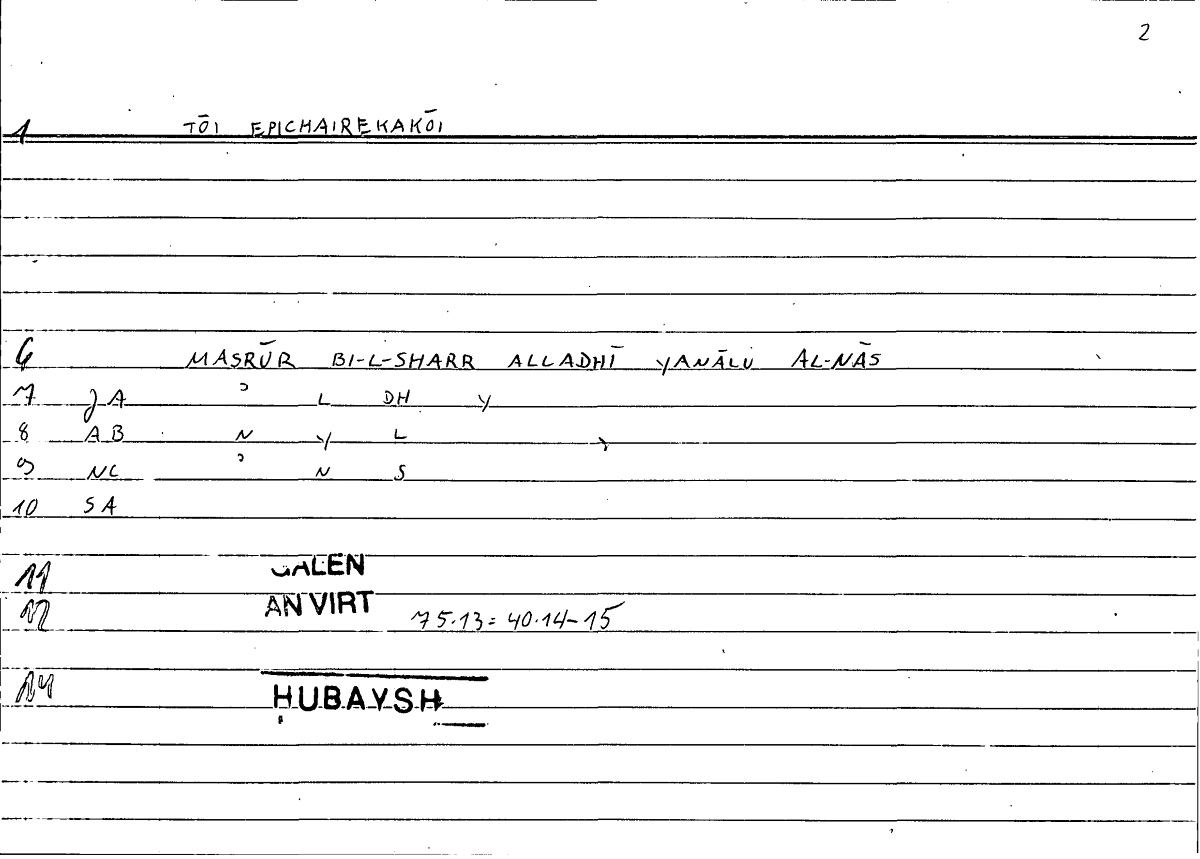 2
1 TŌI EPICHAIREKAKŌI
6 MASRŪR BI-L-SHARR ALLADHĪ YANĀLU AL-NĀS
7 JA ʾ L DH Y
8 AB N Y L
9 NC ʾ N S
10 SA
11 GALEN
12 AN VIRT 75.13 = 40.14-15
14 HUBAYSH